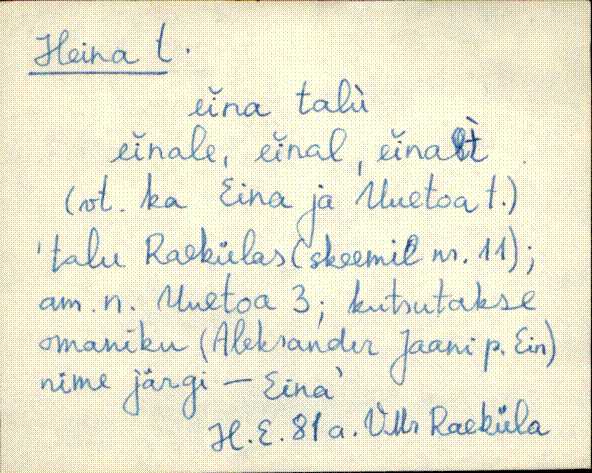 Heina t.
eĭna talù
eĭnale, eĭnal, eĭnalt̀
(vt. ka Eina ja Uuetoa t.)
'talu Raekülas (skeemil nr. 11);
am. n. Uuetoa 3; kutsutakse
omaniku (Aleksander Jaani p. Ein)
nime järgi — Eina'
H. E. 81 a. Raeküla